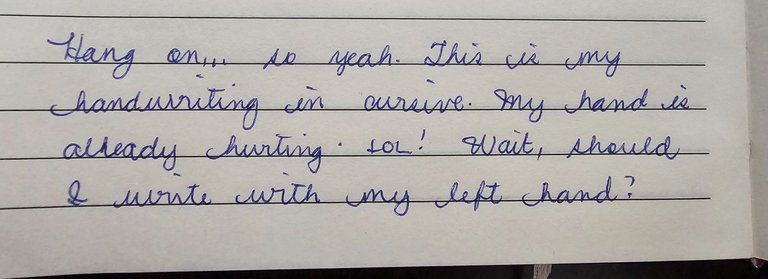 Hang on... so yeah. This is my
handwriting in cursive. My hand is
already hurting. LOL! Wait, should
I write with my left hand?